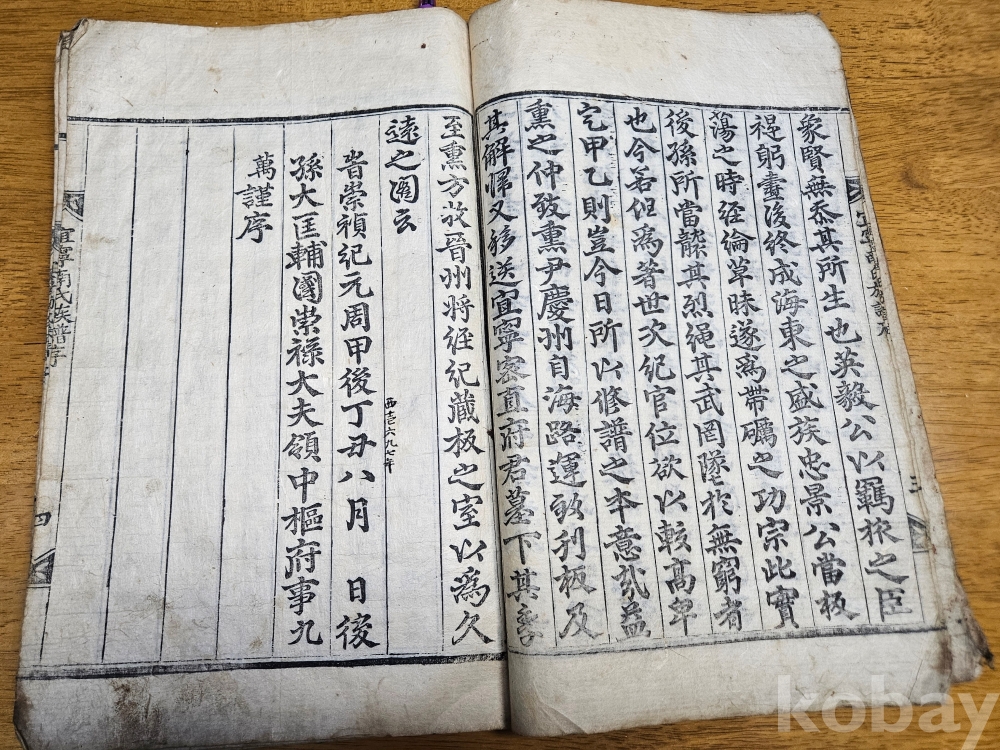 象賢無忝其所生也英毅公以羈旅之臣
禔躬晝後終成海東之盛族忠景公當板
蕩之時經綸草昧遂爲帶礪之功宗此實
後孫所當髴其烈繩其武罔墜於無窮者
也今若但爲著世次紀官位欲以較高卑
定甲乙則豈今日所以修譜之本意哉益
熏之仲致熏尹慶州自海路運致刊板及
其解
又移送宜寧密直府君墓下其季
至熏方莅晉州將經紀藏板之室以爲久
遠之圖云
峕崇禎紀元周甲後丁丑八月 日後
西壱六九七年
孫大匡輔國崇祿大夫領中樞府事九
萬謹序
宜寧南氏族譜序
三
宜寧南氏族譜序
四
kobay